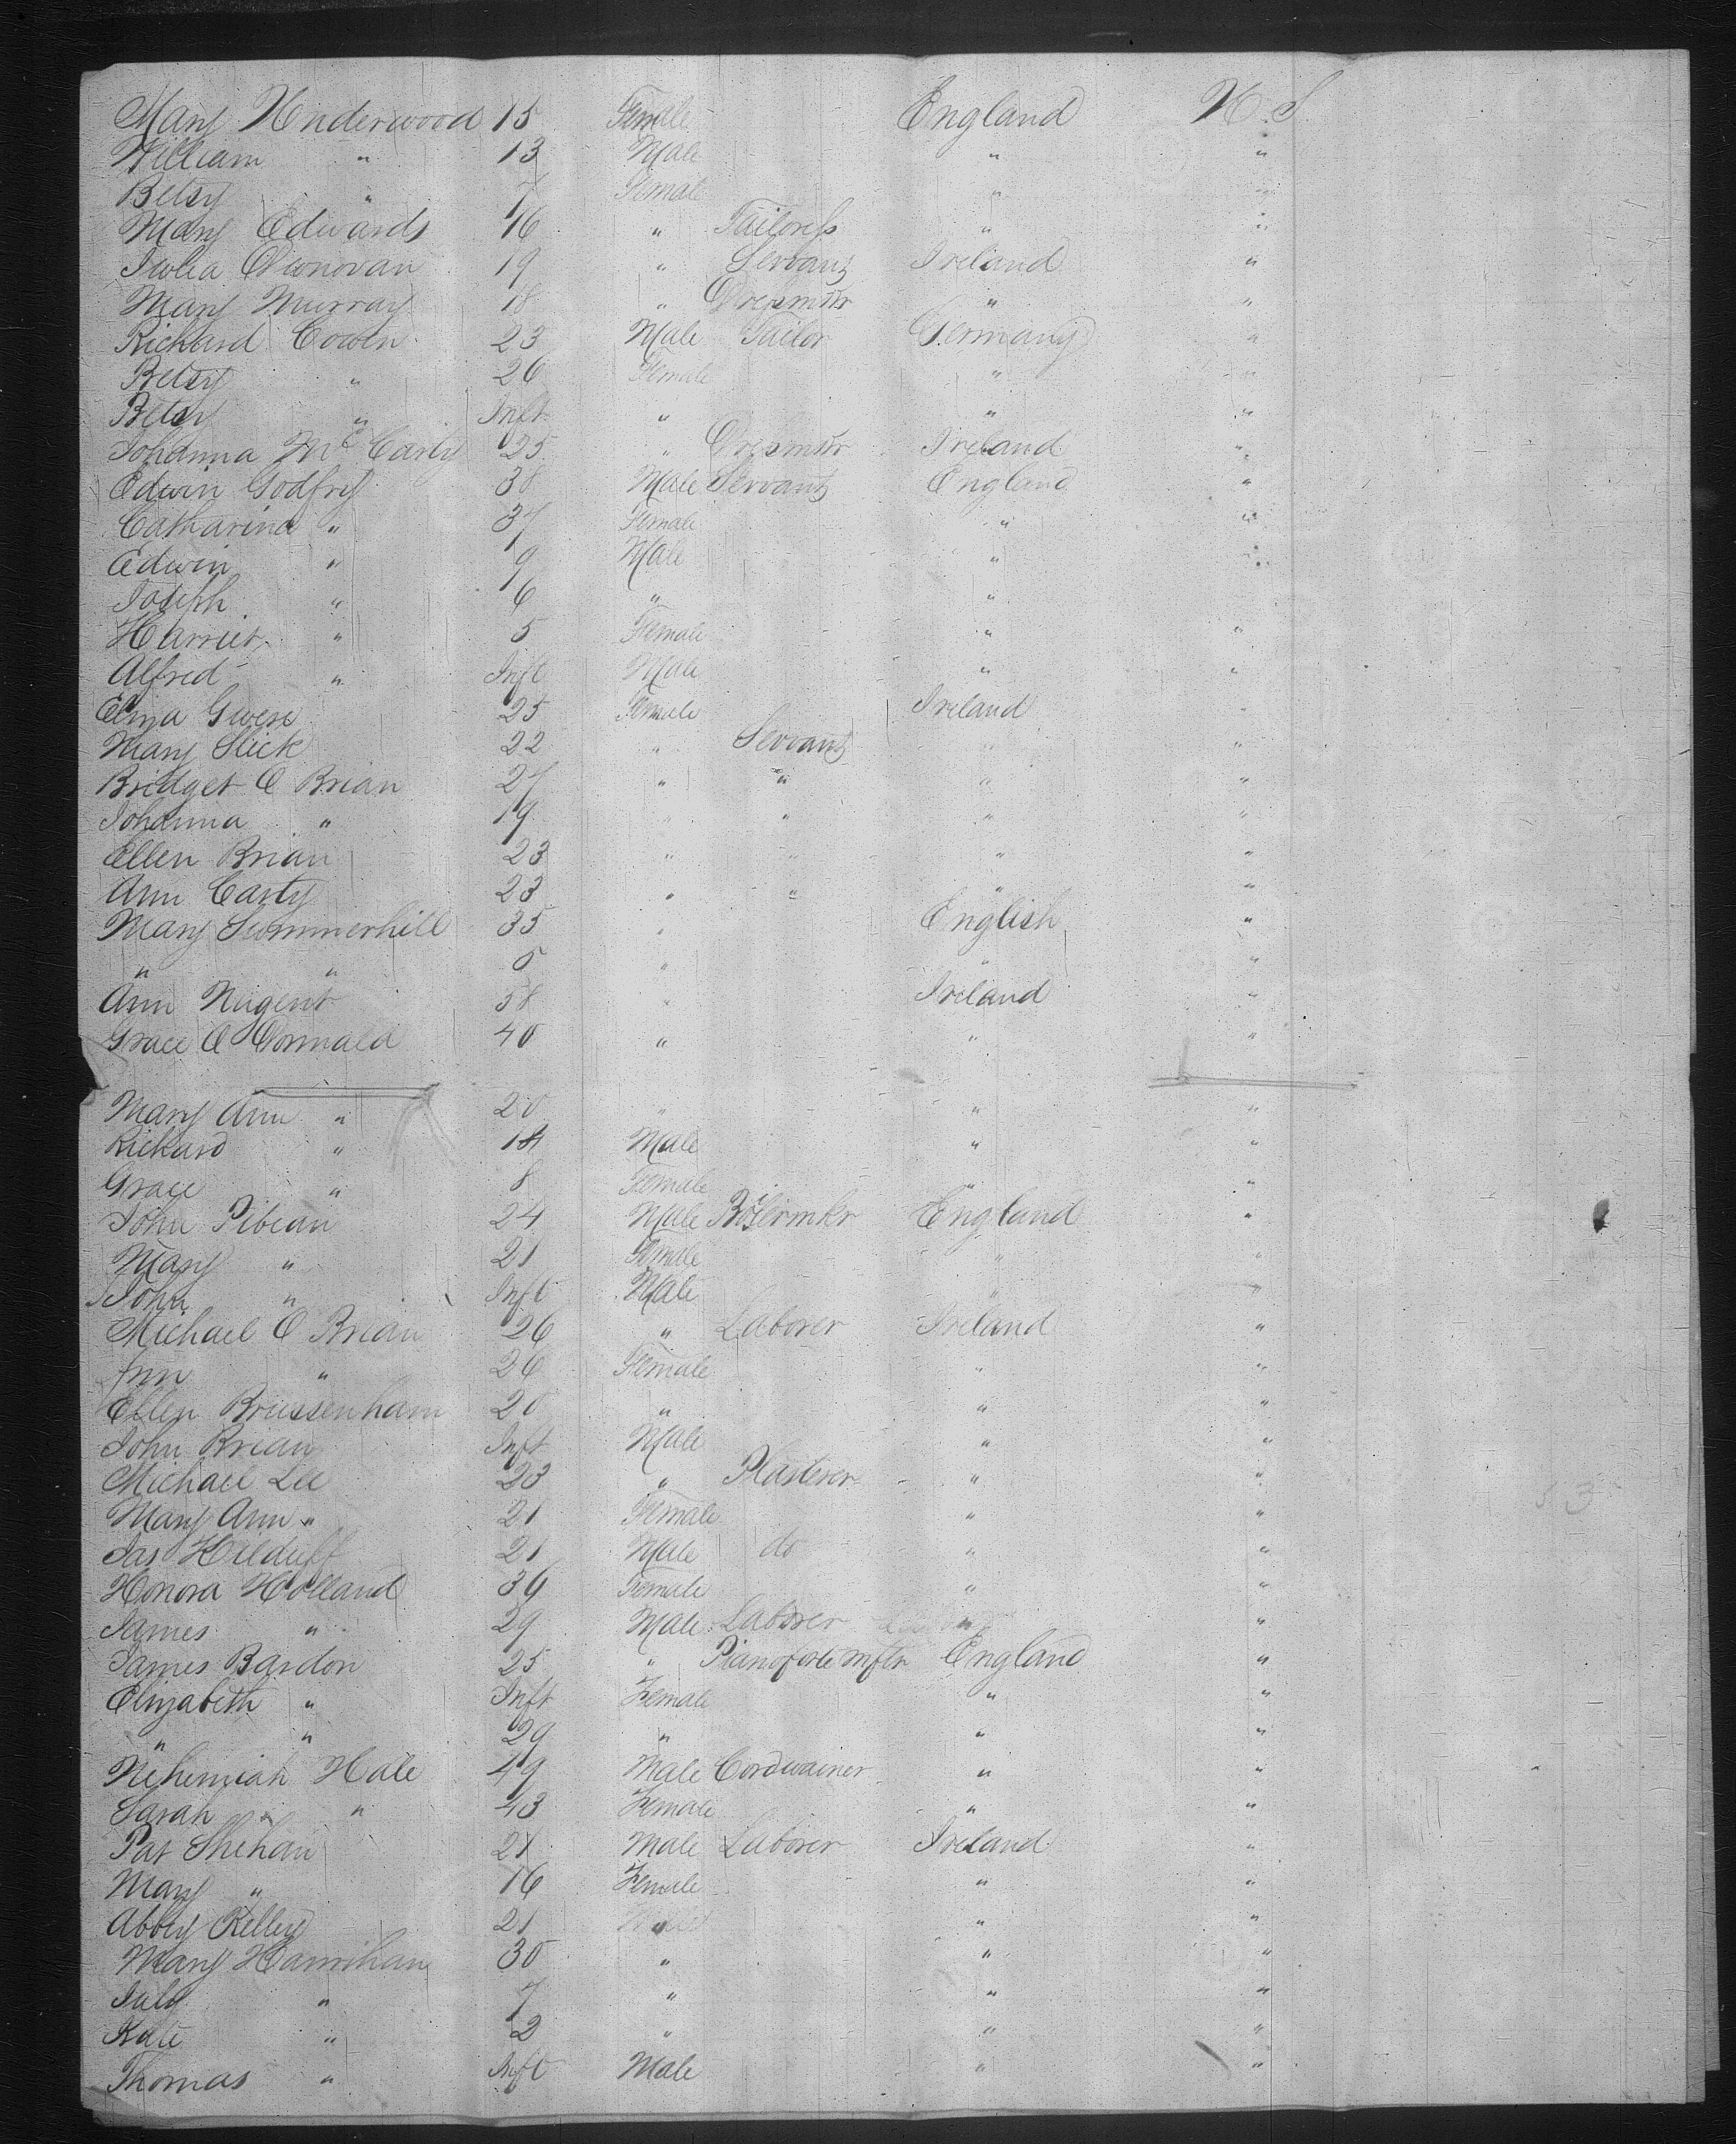 Mary Underwood 15 Female England U.S.
William " 13 Male " "
Betsy " 7 Female " "
Mary Edwards 46 " Tailoress " "
Julia O'Donovan 19 " Servant Ireland "
Mary Murray 18 " Dressmkr " "
Richard Cowen 23 Male Tailor Germany "
Betsy " 26 Female " "
Betsy " Inft " " "
Johanna McCarty 25 " Dressmkr Ireland "
Edwin Godfrey 38 Male Servant England "
Catharine " 37 Female " "
Edwin " 9 Male " "
Joseph " 6 " "
Harriet " 5 Female " "
Alfred " Inft Male " "
Eliza 25 Female Ireland "
Mary Slick 22 " Servant " "
Bridget O Brian 27 " " " "
Johanna " 19 " " " "
Ellen Brian 23 " " " "
Ann Carty 23 " " " "
Mary Summerhill 35 " English "
" " 5 " " "
Ann Nugent 58 " Ireland "
Grace O 40 " " "
Mary Ann " 20 " " "
Richard " 14 Male " "
Grace " 8 Female " "
John Pibean 24 Male Boilermkr England "
Mary " 21 Female " "
John " Inft Male " "
Michael O Brian 26 " Laborer Ireland "
Ann " 26 Female " "
Ellen 20 " " "
John Brian Inft Male " "
Michael Lee 23 " Plasterer " "
Mary Ann " 21 Female " "
Jas Kilduff 21 Male do " "
Honora Holland 36 Female " "
James " 29 Male Laborer " "
James Bardon 25 " Pianoforte mftr England "
Elizabeth " Inft Female " "
" " 29 " " "
Nehemiah Hale 49 Male Cordwainer " "
Sarah " 43 Female " "
Pat Shehan 21 Male Laborer Ireland "
Mary " 16 Female " "
Abbey Kelley 21 " " "
Mary Hanrihan 30 " " "
July " 7 " " "
Kate " 2 " " "
Thomas " Inft Male " "